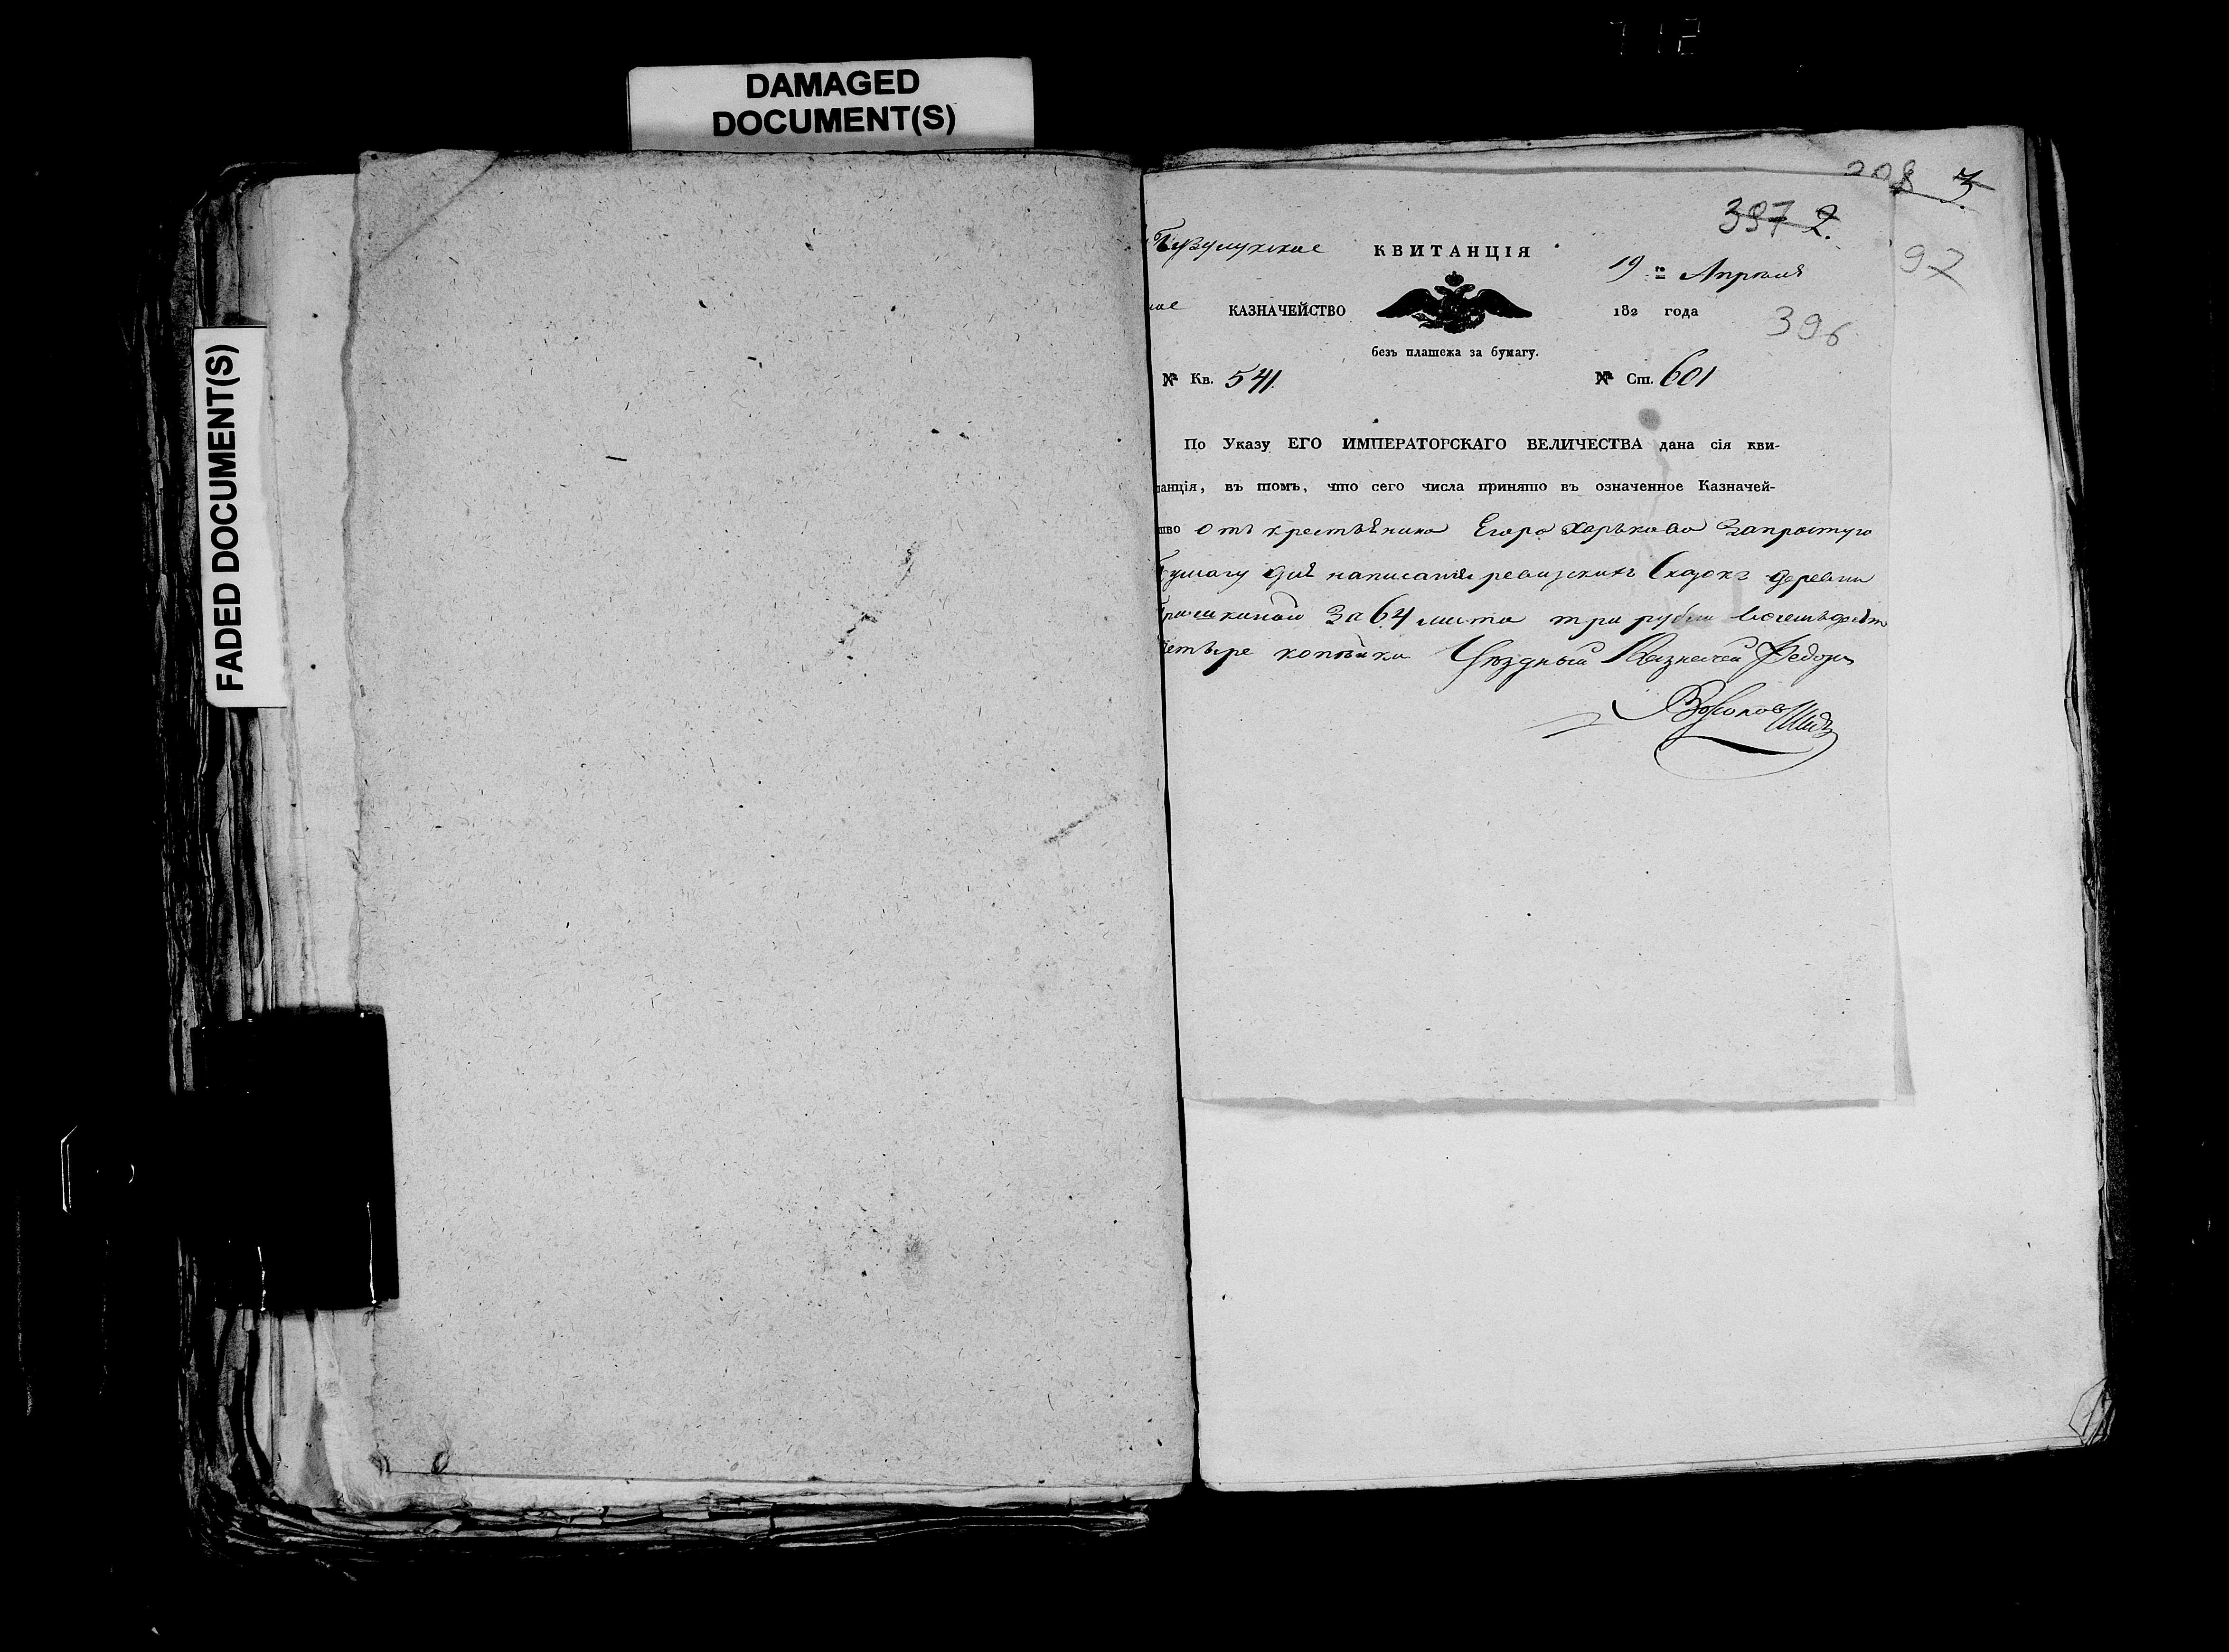 DAMAGED
DOCUMENT(S)
FADED DOCUMENT(S)
208 3
397 2.
97
Бузулукское КВИТАНЦІЯ 19 го Апреля
ное КАЗНАЧЕЙСТВО 182 года
396
безъ платежа за бумагу.
№ Кв. 541. № Ст. 601
По Указу ЕГО ИМПЕРАТОРСКАГО ВЕЛИЧЕСТВА дана сія кви-
танція, въ томъ, что сего числа принято въ означенное Казначей-
тво отъ крестьянина Егора Харькова за простую
бумагу для написания ревизскихъ Сказокъ деревни
за 64 листа три рубли восемьдесят
четыре копейки Уездный Казначей Федоръ